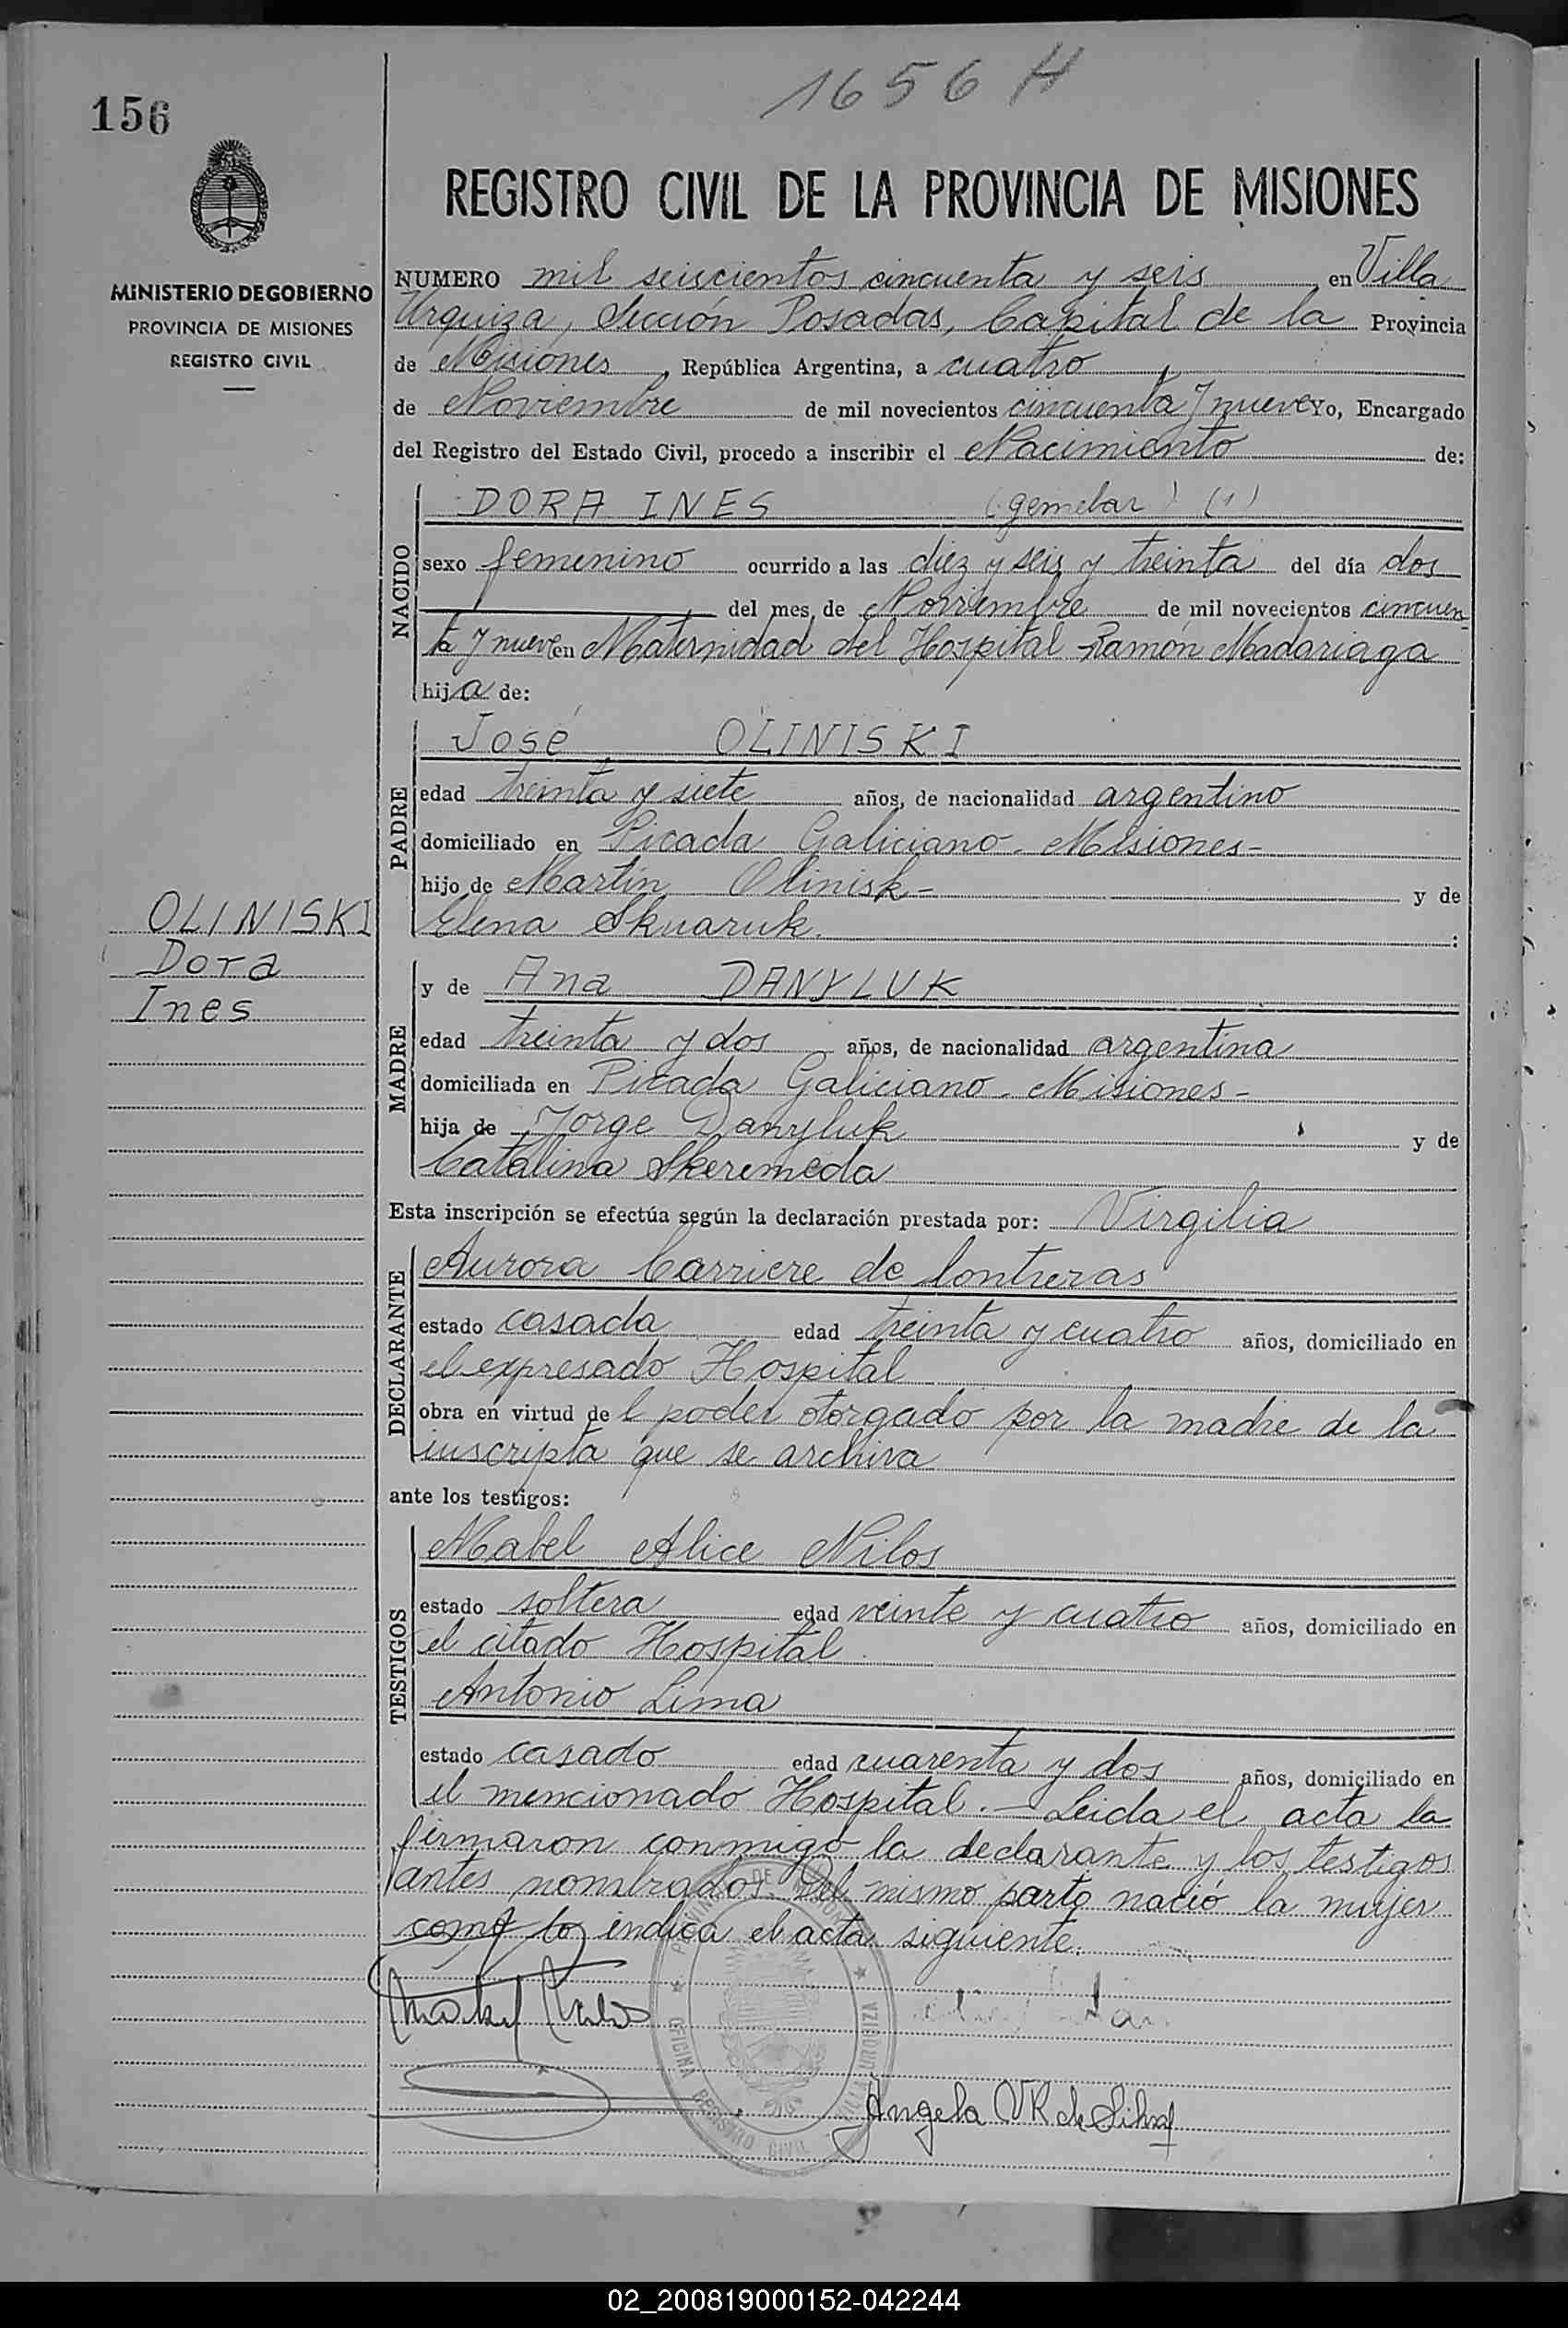 1656 H
156
REGISTRO CIVIL DE LA PROVINCIA DE MISIONES
MINISTERIO DE GOBIERNO
PROVINCIA DE MISIONES
REGISTRO CIVIL
NUMERO mil seiscientos cincuenta y seis en Villa
Urquiza, Sección Posadas, Capital de la Provincia
de Misiones, República Argentina, a cuatro
de Noviembre de mil novecientos cincuenta y nueve Yo, Encargado
del Registro del Estado Civil, procedo a inscribir el Nacimiento de:
NACIDO
DORA INES (gemelar) (1)
sexo femenino ocurrido a las diez y seis y treinta del día dos
del mes de Noviembre de mil novecientos cincuen
ta y nueve en Maternidad del Hospital Ramón Madariaga
hija de:
PADRE
José OLINISKI
edad treinta y siete años, de nacionalidad argentino
domiciliado en Picada Galiciano - Misiones -
hijo de Martín Olinisk - y de
Elena Skuaruk. :
OLINISKI
Dora
Ines
MADRE
y de Ana DANYLUK
edad treinta y dos años, de nacionalidad argentina
domiciliada en Picada Galiciano - Misiones -
hija de Jorge Danyluk y de
Catalina Skeremeda
Esta inscripción se efectúa según la declaración prestada por: Virgilia
DECLARANTE
Aurora Carriere de Contreras
estado casada edad treinta y cuatro años, domiciliado en
el expresado Hospital
obra en virtud de l poder otorgado por la madre de la
inscripta que se archiva
ante los testigos:
TESTIGOS
Mabel Alice Nilos
estado soltera edad veinte y cuatro años, domiciliado en
el citado Hospital
Antonio Lima
estado casado edad cuarenta y dos años, domiciliado en
el mencionado Hospital. - Leida el acta la
firmaron conmigo la declarante y los testigos
antes nombrados. Del mismo parto nació la mujer
como lo indica el acta siguiente.
OFICINA REGISTRO CIVIL
Angela VR de Silva
02_200819000152-042244